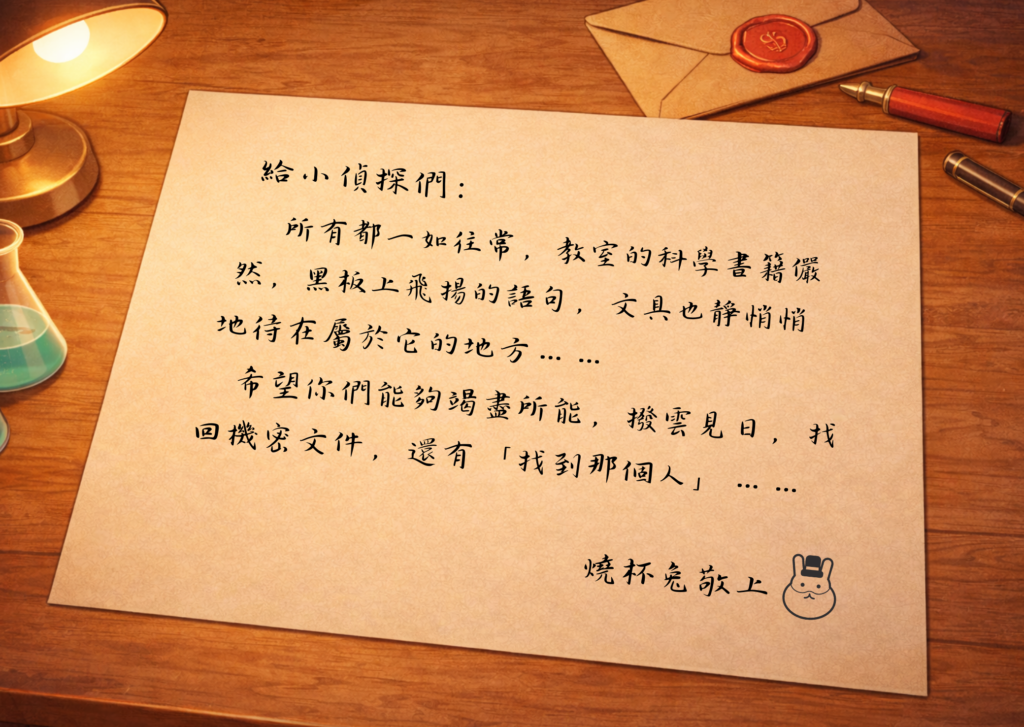 給小偵探們：
所有都一如往常，教室的科學書籍儼
然，黑板上飛揚的語句，文具也靜悄悄
地待在屬於它的地方……
希望你們能夠竭盡所能，撥雲見日，找
回機密文件，還有「找到那個人」……
燒杯兔敬上